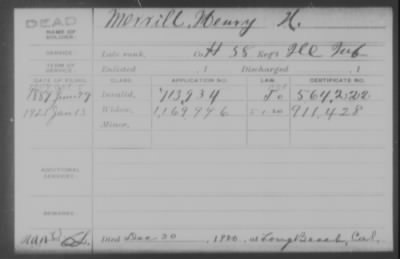 DEAD
NAME OF SOLDIER:
Merrill, Henry H.
SERVICE:
Late rank, Co. H 58 Reg't Ill Inf
TERM OF SERVICE:
Enlisted , 1 Discharged , 1
DATE OF FILING. CLASS. APPLICATION NO. LAW. CERTIFICATE NO.
1889 June 29 Invalid, 713,934 564,222
1921 Jan 13 Widow, 1,169,996 911,428
Minor,
ADDITIONAL SERVICES:
REMARKS:
Died Dec 20 , 1920, at Long Beach, Cal.